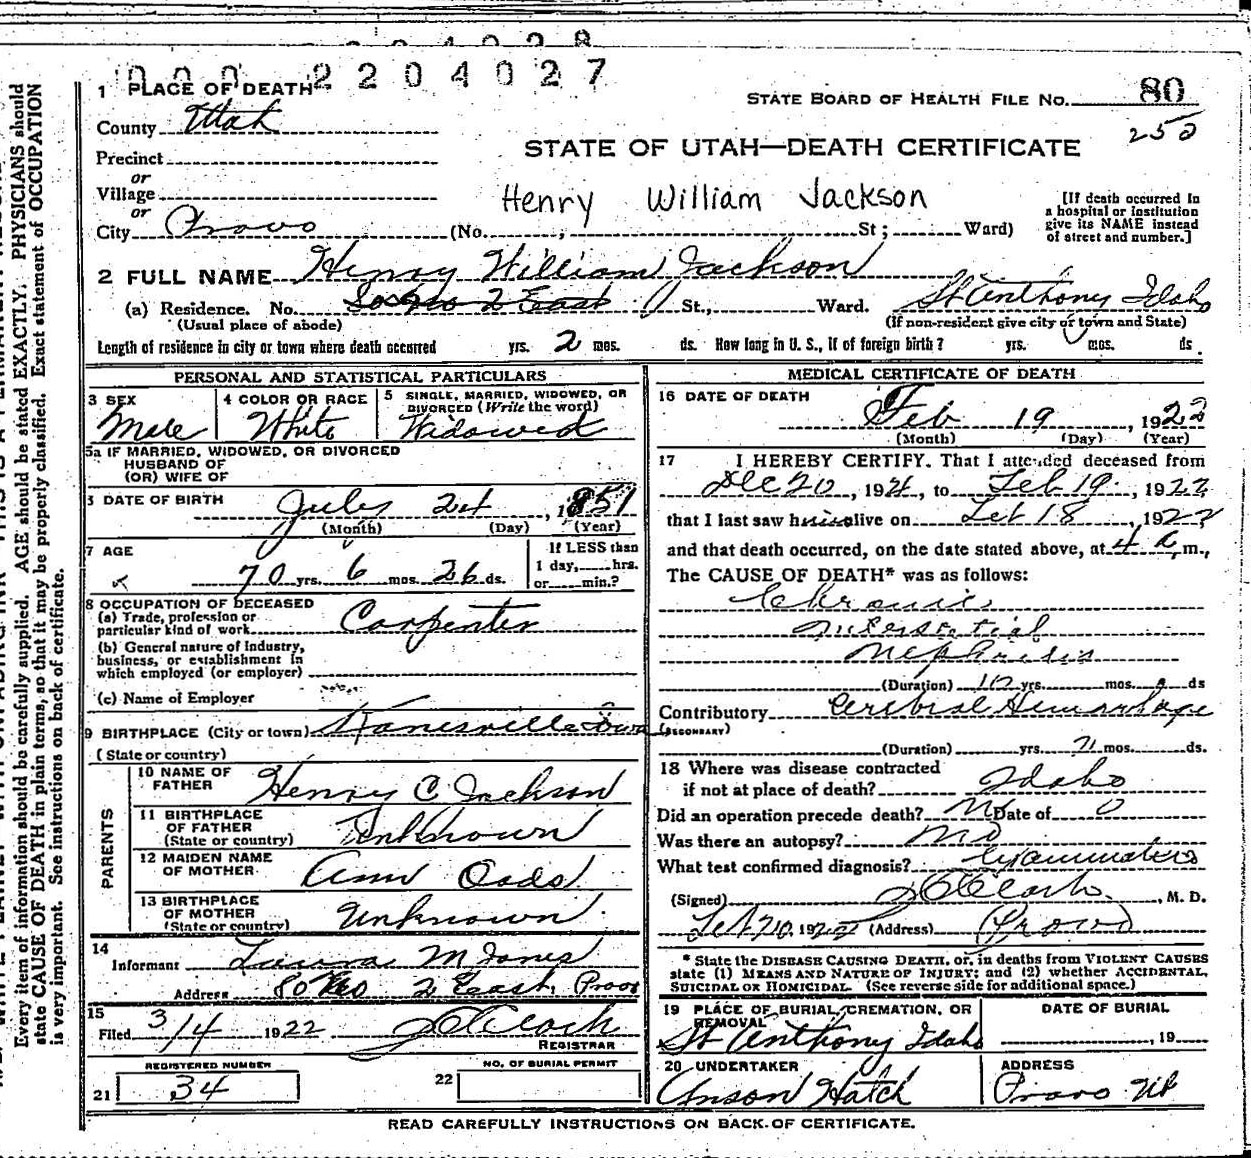 000 2204027
1 PLACE OF DEATH
STATE BOARD OF HEALTH FILE NO. 80
County Utah
STATE OF UTAH—DEATH CERTIFICATE
Precinct
or
Village
Henry William Jackson
or
City Provo (No. ; St ; Ward)
[If death occurred in
a hospital or institution
give its NAME instead
of street and number.]
2 FULL NAME Henry William Jackson
(a) Residence. No. 2 East St., Ward. St Anthony Idaho
(Usual place of abode) (If non-resident give city or town and State)
Length of residence in city or town where death occurred yrs. 2 mos. ds. How long in U. S., if of foreign birth? yrs. mos. ds.
PERSONAL AND STATISTICAL PARTICULARS
3 SEX Male
4 COLOR OR RACE White
5 SINGLE, MARRIED, WIDOWED, OR
DIVORCED (Write the word)
Widowed
5a IF MARRIED, WIDOWED, OR DIVORCED
HUSBAND OF
(OR) WIFE OF
DATE OF BIRTH July 24, 1851
(Month) (Day) (Year)
7 AGE
70 yrs. 6 mos. 26 ds.
If LESS than
1 day, hrs.
or min.?
8 OCCUPATION OF DECEASED
(a) Trade, profession or
particular kind of work Carpenter
(b) General nature of Industry,
business, or establishment in
which employed (or employer)
(c) Name of Employer
9 BIRTHPLACE (City or town) Kanesville Iowa
(State or country)
PARENTS
10 NAME OF
FATHER Henry C Jackson
11 BIRTHPLACE
OF FATHER
(State or country) Unknown
12 MAIDEN NAME
OF MOTHER Ann Oads
13 BIRTHPLACE
OF MOTHER
(State or country) Unknown
14
Informant Laura M Jones
Address 2 East Provo
15
Filed 3/4 1922 Clark
REGISTRAR
REGISTERED NUMBER
21 34
NO. OF BURIAL PERMIT
22
MEDICAL CERTIFICATE OF DEATH
16 DATE OF DEATH
Feb 19, 1922
(Month) (Day) (Year)
17 I HEREBY CERTIFY, That I attended deceased from
Dec 20, 1921, to Feb 19, 1922
that I last saw him alive on Feb 18, 1922
and that death occurred, on the date stated above, at 4 a m.,
The CAUSE OF DEATH* was as follows:
Chronic
Interstitial
Nephritis
(Duration) 10 yrs. mos. ds
Contributory Cerebral Hemorrhage
(SECONDARY)
(Duration) yrs. mos. ds.
18 Where was disease contracted
if not at place of death? Idaho
Did an operation precede death? No Date of 0
Was there an autopsy? No
What test confirmed diagnosis?
(Signed) Clark, M. D.
Feb 20, 1922 (Address) Provo
* State the DISEASE CAUSING DEATH, or, in deaths from VIOLENT CAUSES
state (1) MEANS AND NATURE OF INJURY; and (2) whether ACCIDENTAL,
SUICIDAL OR HOMICIDAL. (See reverse side for additional space.)
19 PLACE OF BURIAL, CREMATION, OR
REMOVAL
St Anthony Idaho
DATE OF BURIAL
, 19
20 UNDERTAKER
Anson Hatch
ADDRESS
Provo Ut
READ CAREFULLY INSTRUCTIONS ON BACK OF CERTIFICATE.
Every item of information should be carefully supplied. AGE should be stated EXACTLY. PHYSICIANS should
state CAUSE OF DEATH in plain terms, so that it may be properly classified. Exact statement of OCCUPATION
is very important. See instructions on back of certificate.